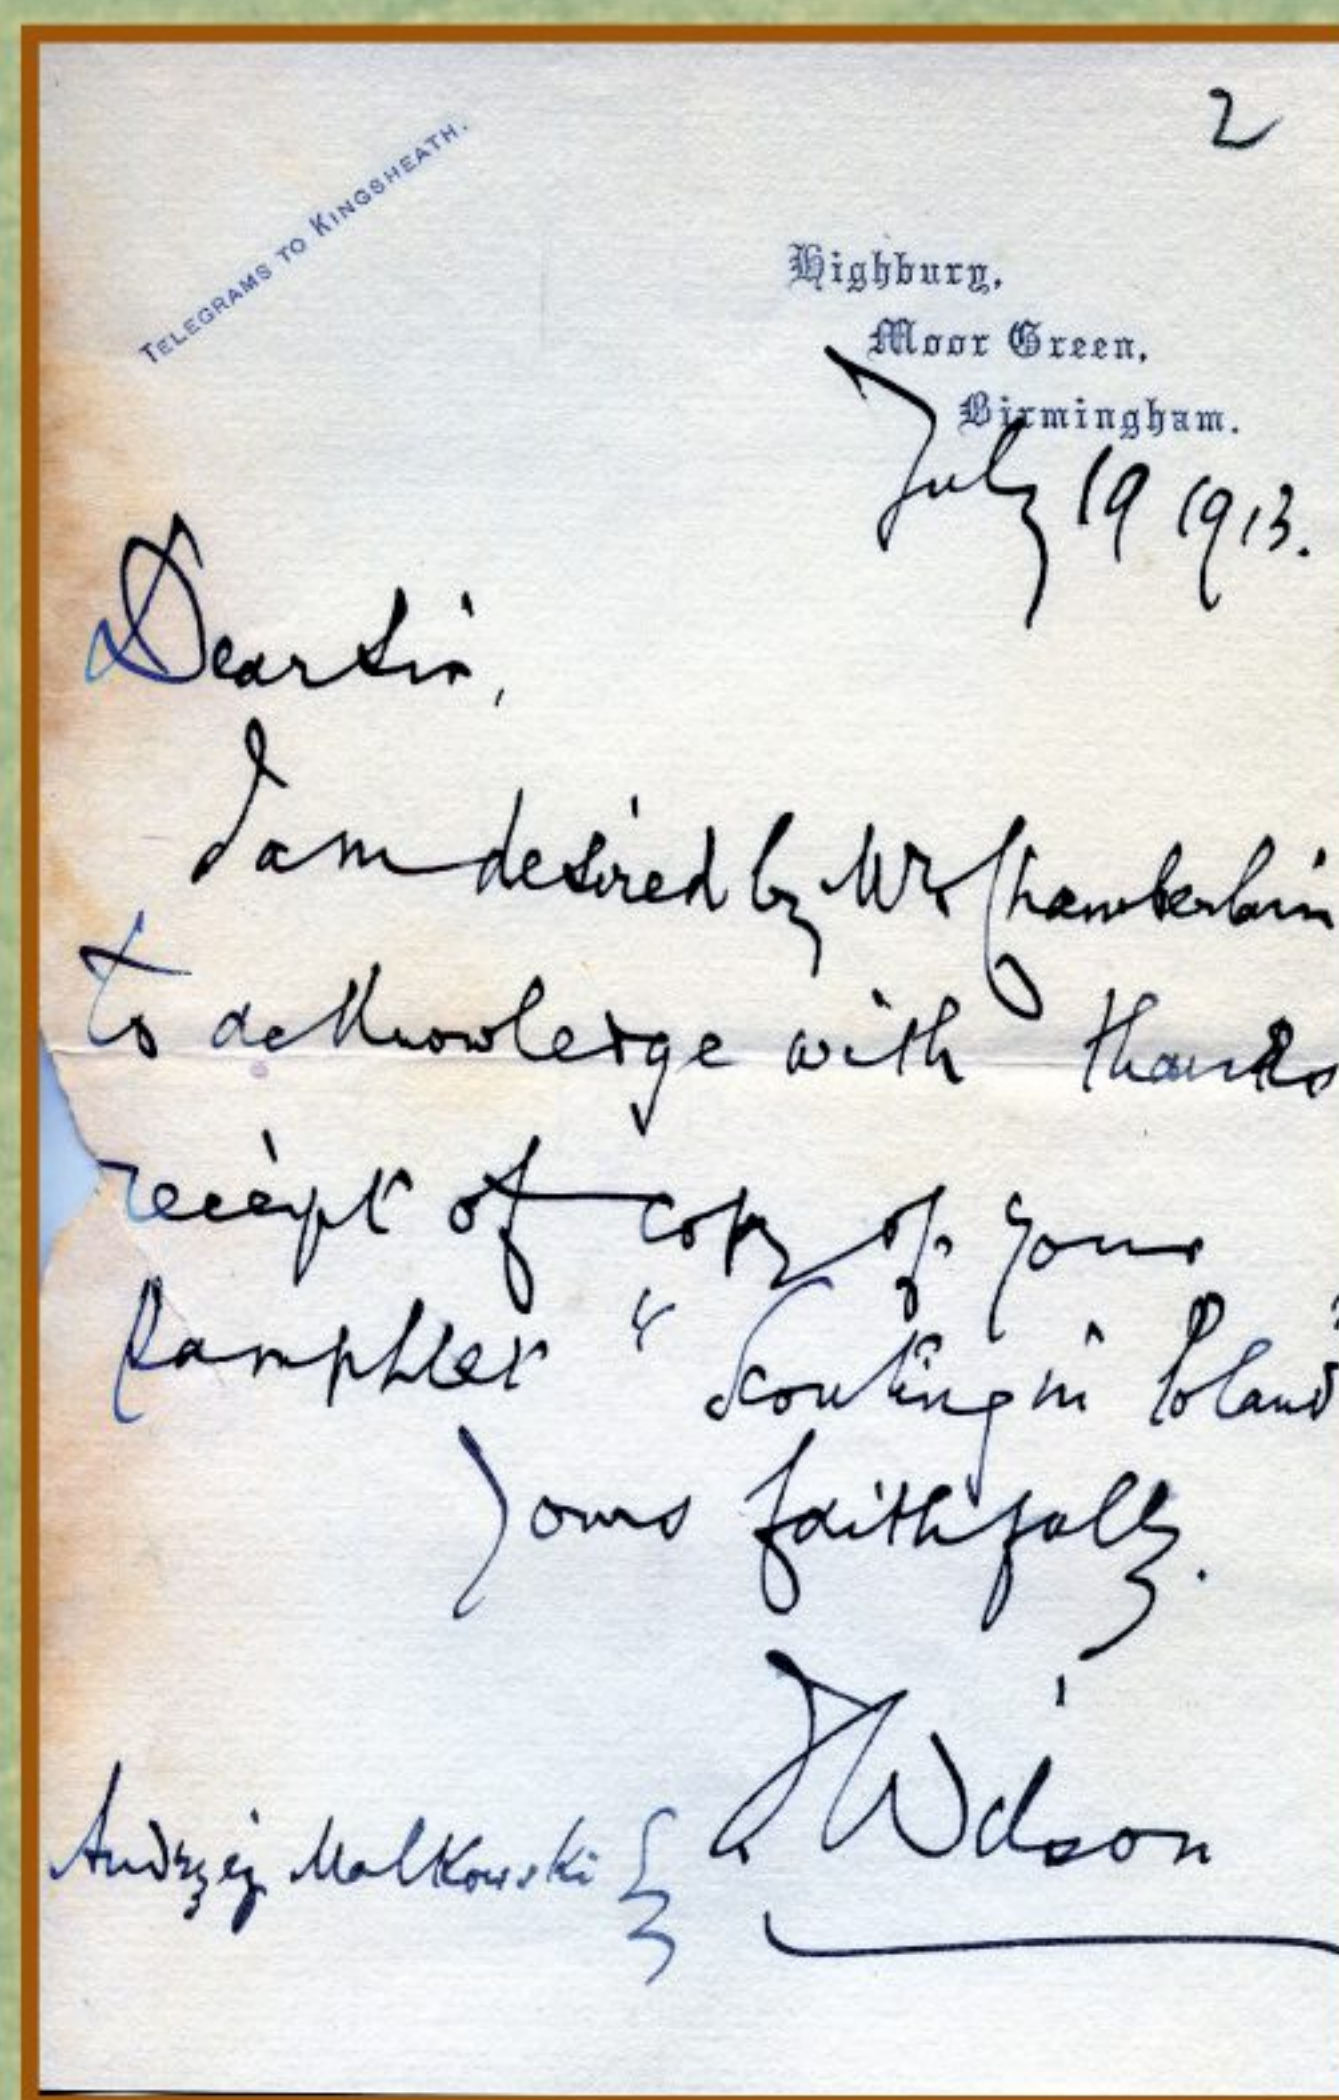 2
TELEGRAMS TO KINGSHEATH.
Highbury,
Moor Green,
Birmingham.
July 19 1913.
Dear Sir,
I am desired by Mr Chamberlain
to acknowledge with thanks
receipt of copy of your
pamphlet "Scouting in Poland"
Yours faithfully.
J Wilson
Andrzej Malkowski